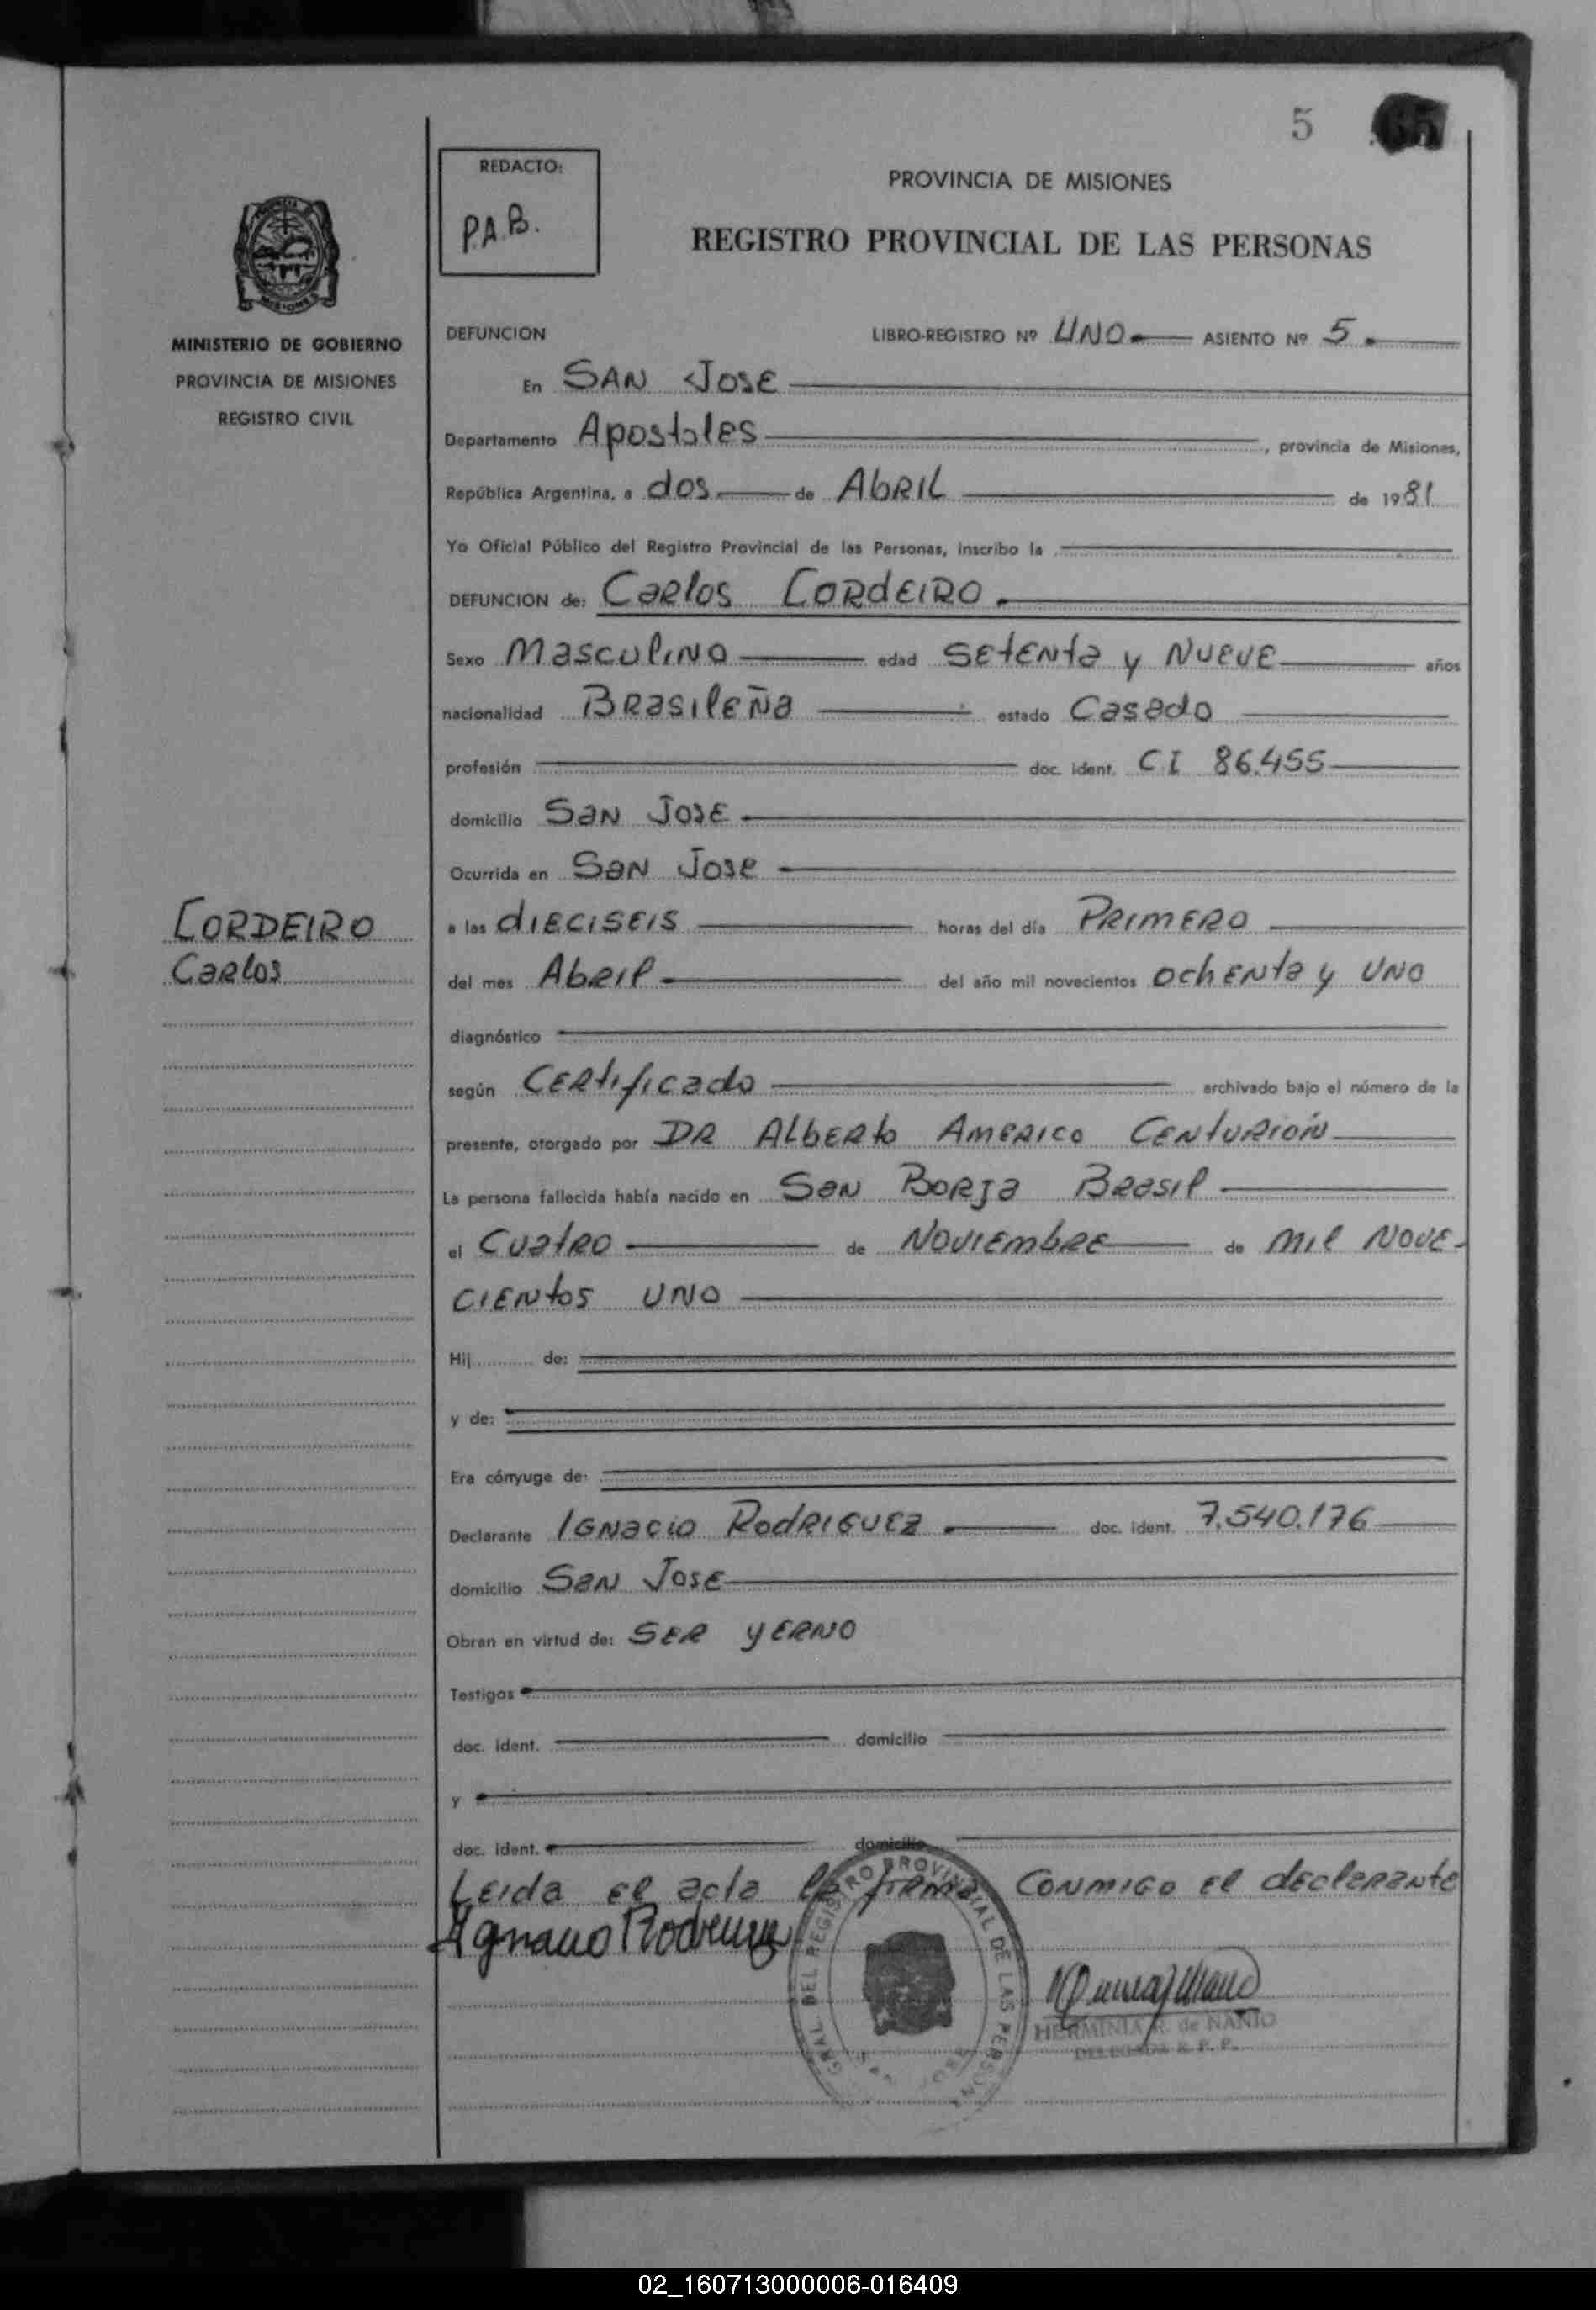 5
REDACTO:
P.A.B.
PROVINCIA DE MISIONES
REGISTRO PROVINCIAL DE LAS PERSONAS
MISIONES
MINISTERIO DE GOBIERNO
PROVINCIA DE MISIONES
REGISTRO CIVIL
DEFUNCION LIBRO-REGISTRO Nº UNO ASIENTO Nº 5
En SAN JOSE
Departamento Apostoles, provincia de Misiones,
República Argentina, a dos de ABRIL de 1981
Yo Oficial Público del Registro Provincial de las Personas, inscribo la
DEFUNCION de: Carlos CORDEIRO
Sexo Masculino edad Setenta y Nueve años
nacionalidad Brasileña estado Casado
profesión doc. ident. CI 86.455
domicilio San Jose
Ocurrida en San Jose
CORDEIRO
Carlos
a las dieciseis horas del día Primero
del mes Abril del año mil novecientos ochenta y uno
diagnóstico
según Certificado archivado bajo el número de la
presente, otorgado por DR Alberto Americo Centurión
La persona fallecida había nacido en San Borja Brasil
el Cuatro de Noviembre de mil nove-
cientos uno
Hij de:
y de:
Era cónyuge de:
Declarante Ignacio Rodriguez doc. ident. 7.540.176
domicilio San Jose
Obran en virtud de: Ser yerno
Testigos
doc. ident. domicilio
y
doc. ident. domicilio
Leida el acta la firma conmigo el declarante
Ignacio Rodriguez
GRAL. DEL REGISTRO PROVINCIAL DE LAS PERSONAS
SAN JOSE
HERMINIA R. de NANIO
DELEGADA R. P. P.
02_160713000006-016409